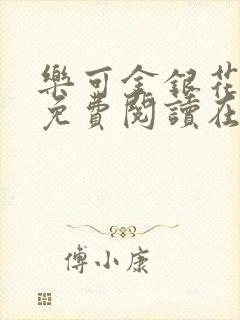 樂可金銀花
免費閱讀在
傅小康